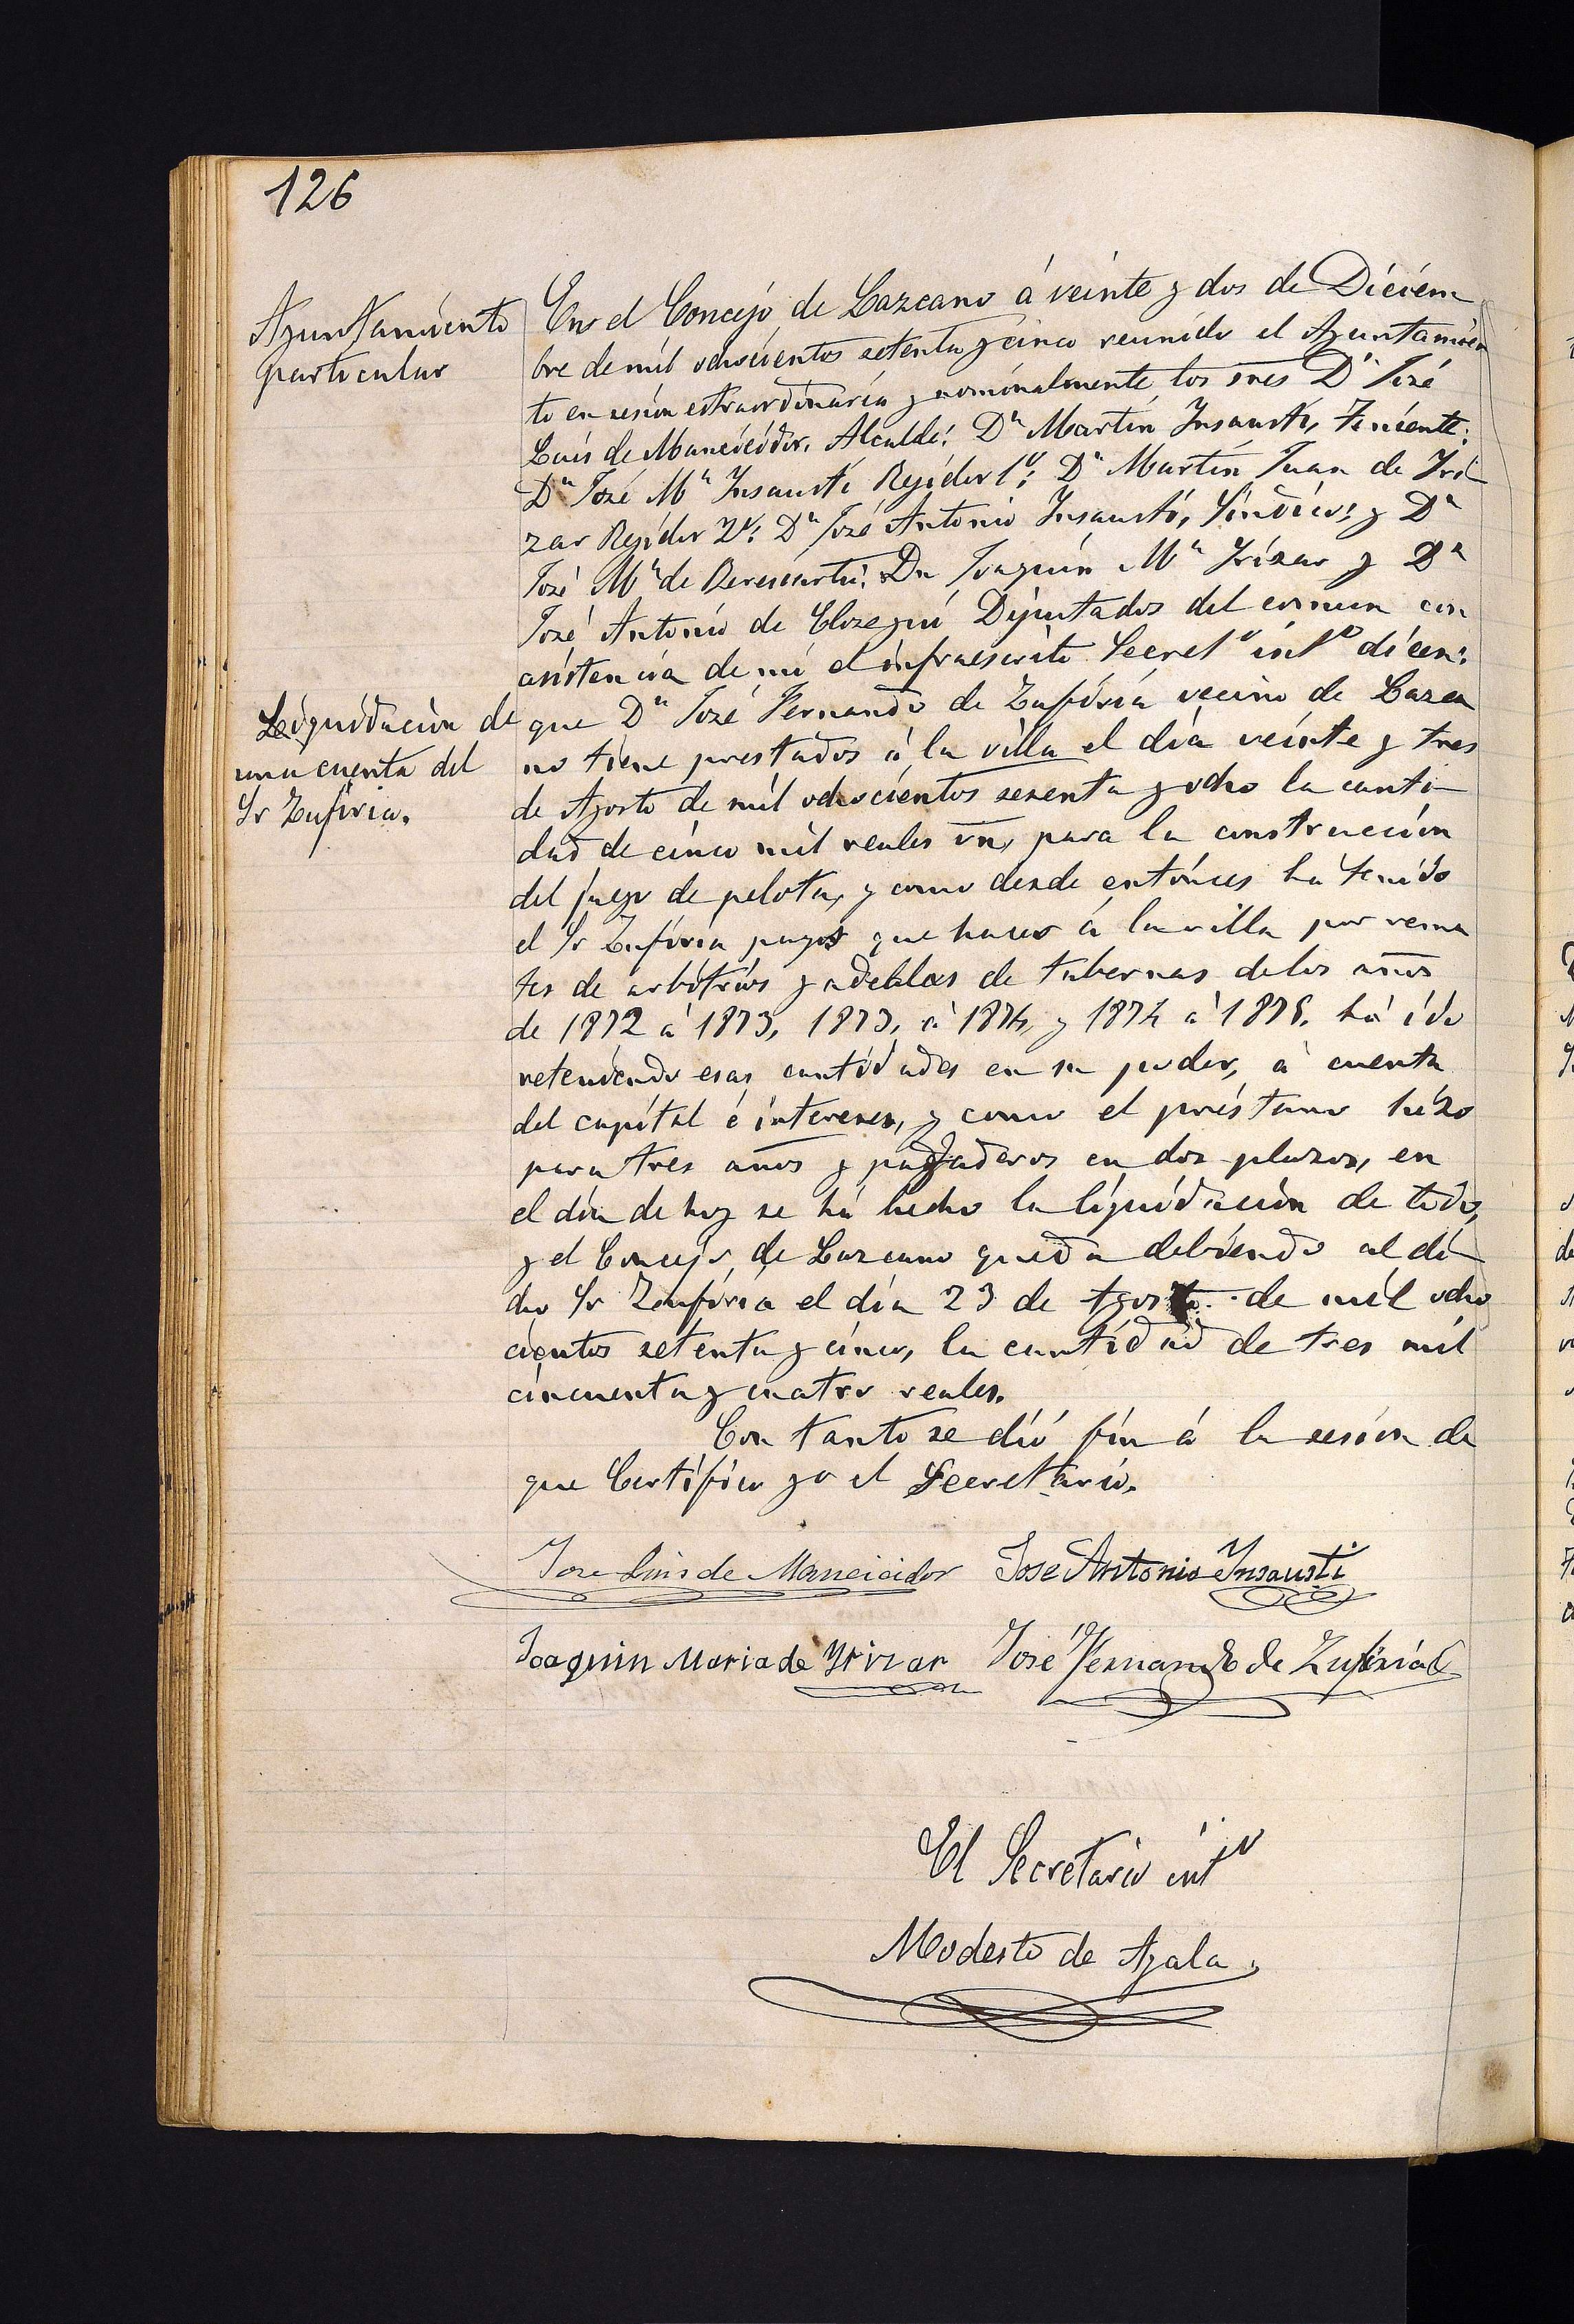 126
Ayuntamiento
particular
En el Concejo de Lazcano á veinte y dos de Diciem
bre de mil ochocientos setenta y cinco reunido el Ayuntamien
to en sesion estraordinaria y nominalmente los sres Dn José
Luis de Mancicidor, Alcalde: Dn Martin Insausti, Teniente:
Dn José Ma Insausti Regidor 1o: Dn Martin Juan de Iri-
zar Regidor 2o: Dn José Antonio Insausti, Sindico: y Dn
José Ma de Bereciartu: Dn Joaquin Ma Irizar y Dn
José Antonio de Elosegui Diputados del comun con
asistencia de mi el infraescrito Secreto into dicen:
Liquidacion de
una cuenta del
Sr Zufiria.
que Dn José Fernando de Zufiria vecino de Lazca
no tiene prestados á la villa el dia veinte y tres
de Agosto de mil ochocientos sesenta y ocho la canti-
dad de cinco mil reales vn, para la construccion
del juego de pelota, y como desde entónces ha tenido
el Sr Zufiria pagos que hacer á la villa por rema
tes de arbitrios y adealas de tabernas de los años
de 1872 á 1873, 1873, á 1874, y 1874 á 1875. há ido
reteniendo esas cantidades en su poder, á cuenta
del capital é intereses, y como el préstamo hizo
para tres años y pagaderos en dos plazos, en
el dia de hoy se há hecho la liquidacion de todo,
y el Concejo de Lazcano queda debiendo al di-
cho Sr Zufiria el dia 23 de Agosto de mil ocho
cientos setenta y cinco, la cantidad de tres mil
cincuenta y cuatro reales.
Con tanto se dió fin á la sesion de
que Certifico yo el Secretario.
Jose Luis de Mancicidor Jose Antonio Insausti
Joaquin Maria de Yrizar José Fernando de Zufiria
El Secretario into
Modesto de Ayala.